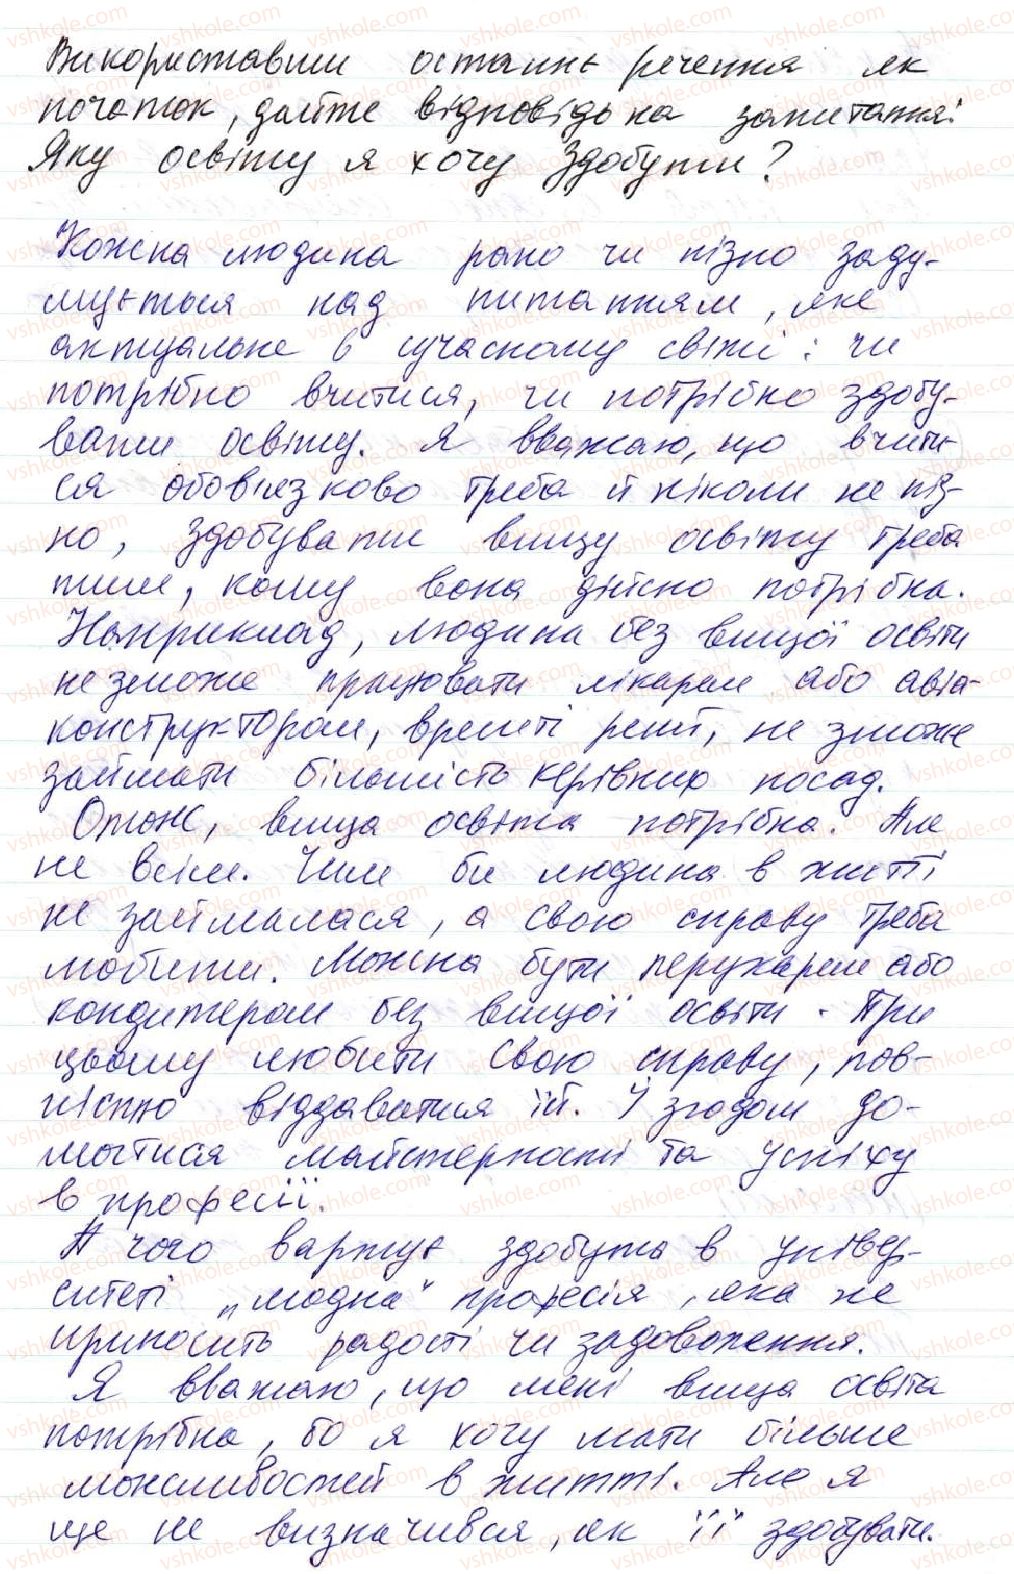 Використавши останнє речення як
початок, дайте відповідь на запитання:
Яку освіту я хочу здобути?
Кожна людина рано чи пізно заду-
мується над питанням, яке
актуальне в сучасному світі: чи
потрібно вчитися, чи потрібно здобу-
вати освіту. Я вважаю, що вчити-
ся обов'язково треба й ніколи не піз-
но, здобувати вищу освіту треба
тим, кому вона дійсно потрібна.
Наприклад, людина без вищої освіти
не зможе працювати лікарем або авіа-
конструктором, врешті решт, не зможе
займати більшість керівних посад.
Отож, вища освіта потрібна. Але
не всім. Чим би людина в житті
не займалася, а свою справу треба
любити. Можна бути перукарем або
кондитером без вищої освіти. При
цьому любити свою справу, пов-
ністю віддаватися їй. І згодом до-
могтися майстерності та успіху
в професії.
А чого вартує здобута в універ-
ситеті „модна" професія, яка не
приносить радості чи задоволення.
Я вважаю, що мені вища освіта
потрібна, бо я хочу мати більше
можливостей в житті. Але я
ще не визначився, як її здобувати.